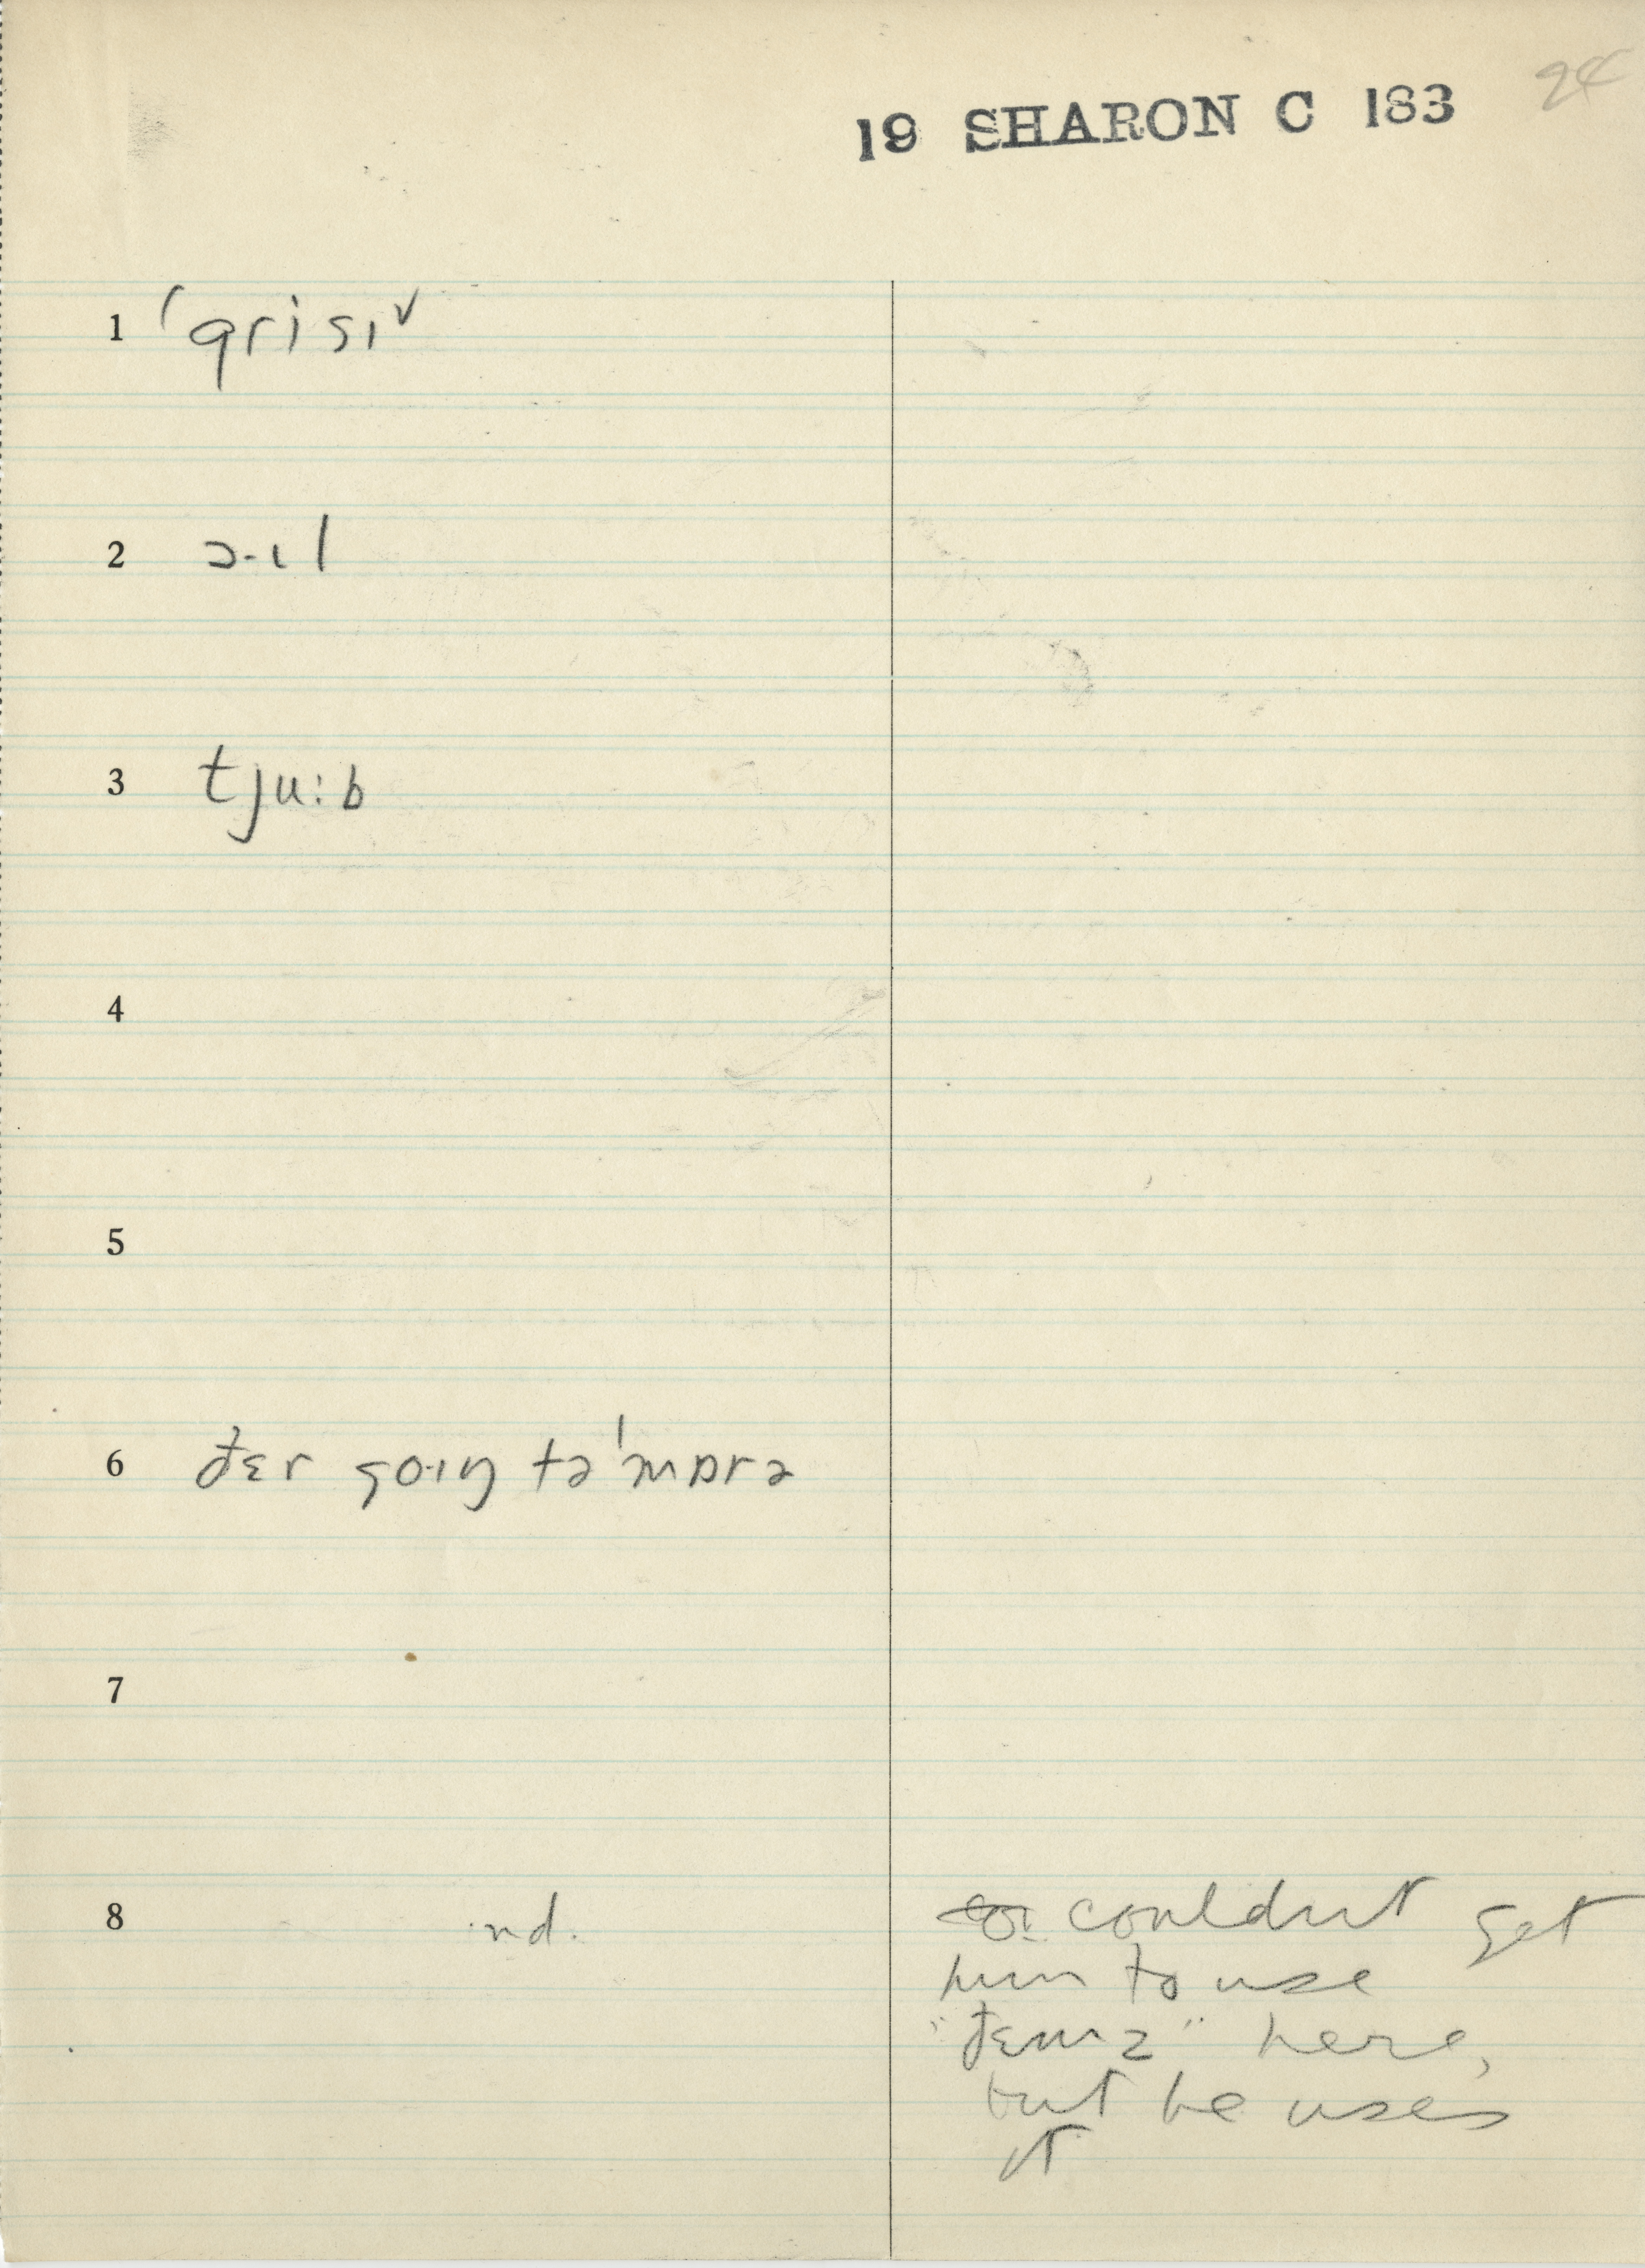 24
19 SHARON C 183
1 ˈgrisɪ˅
2 ɔ·ɪl
3 tju:b
4
5
6 đɛr goɪŋ təˈmɒrə
7
8 nd. couldnt get
him to use
"đɛm z" here,
but he uses
it